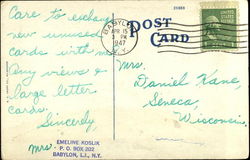 Care to exchange
new unused
cards with me
Any views &
large letter
cards.
Sincerely
Mrs.
EMELINE KOSLIK
P. O. BOX 202
BABYLON, L.I., N.Y.
POST
CARD
BABYLON
APR 15
3 PM
1947
N.Y.
Mrs.
Daniel Kane,
Seneca,
Wisconsin.